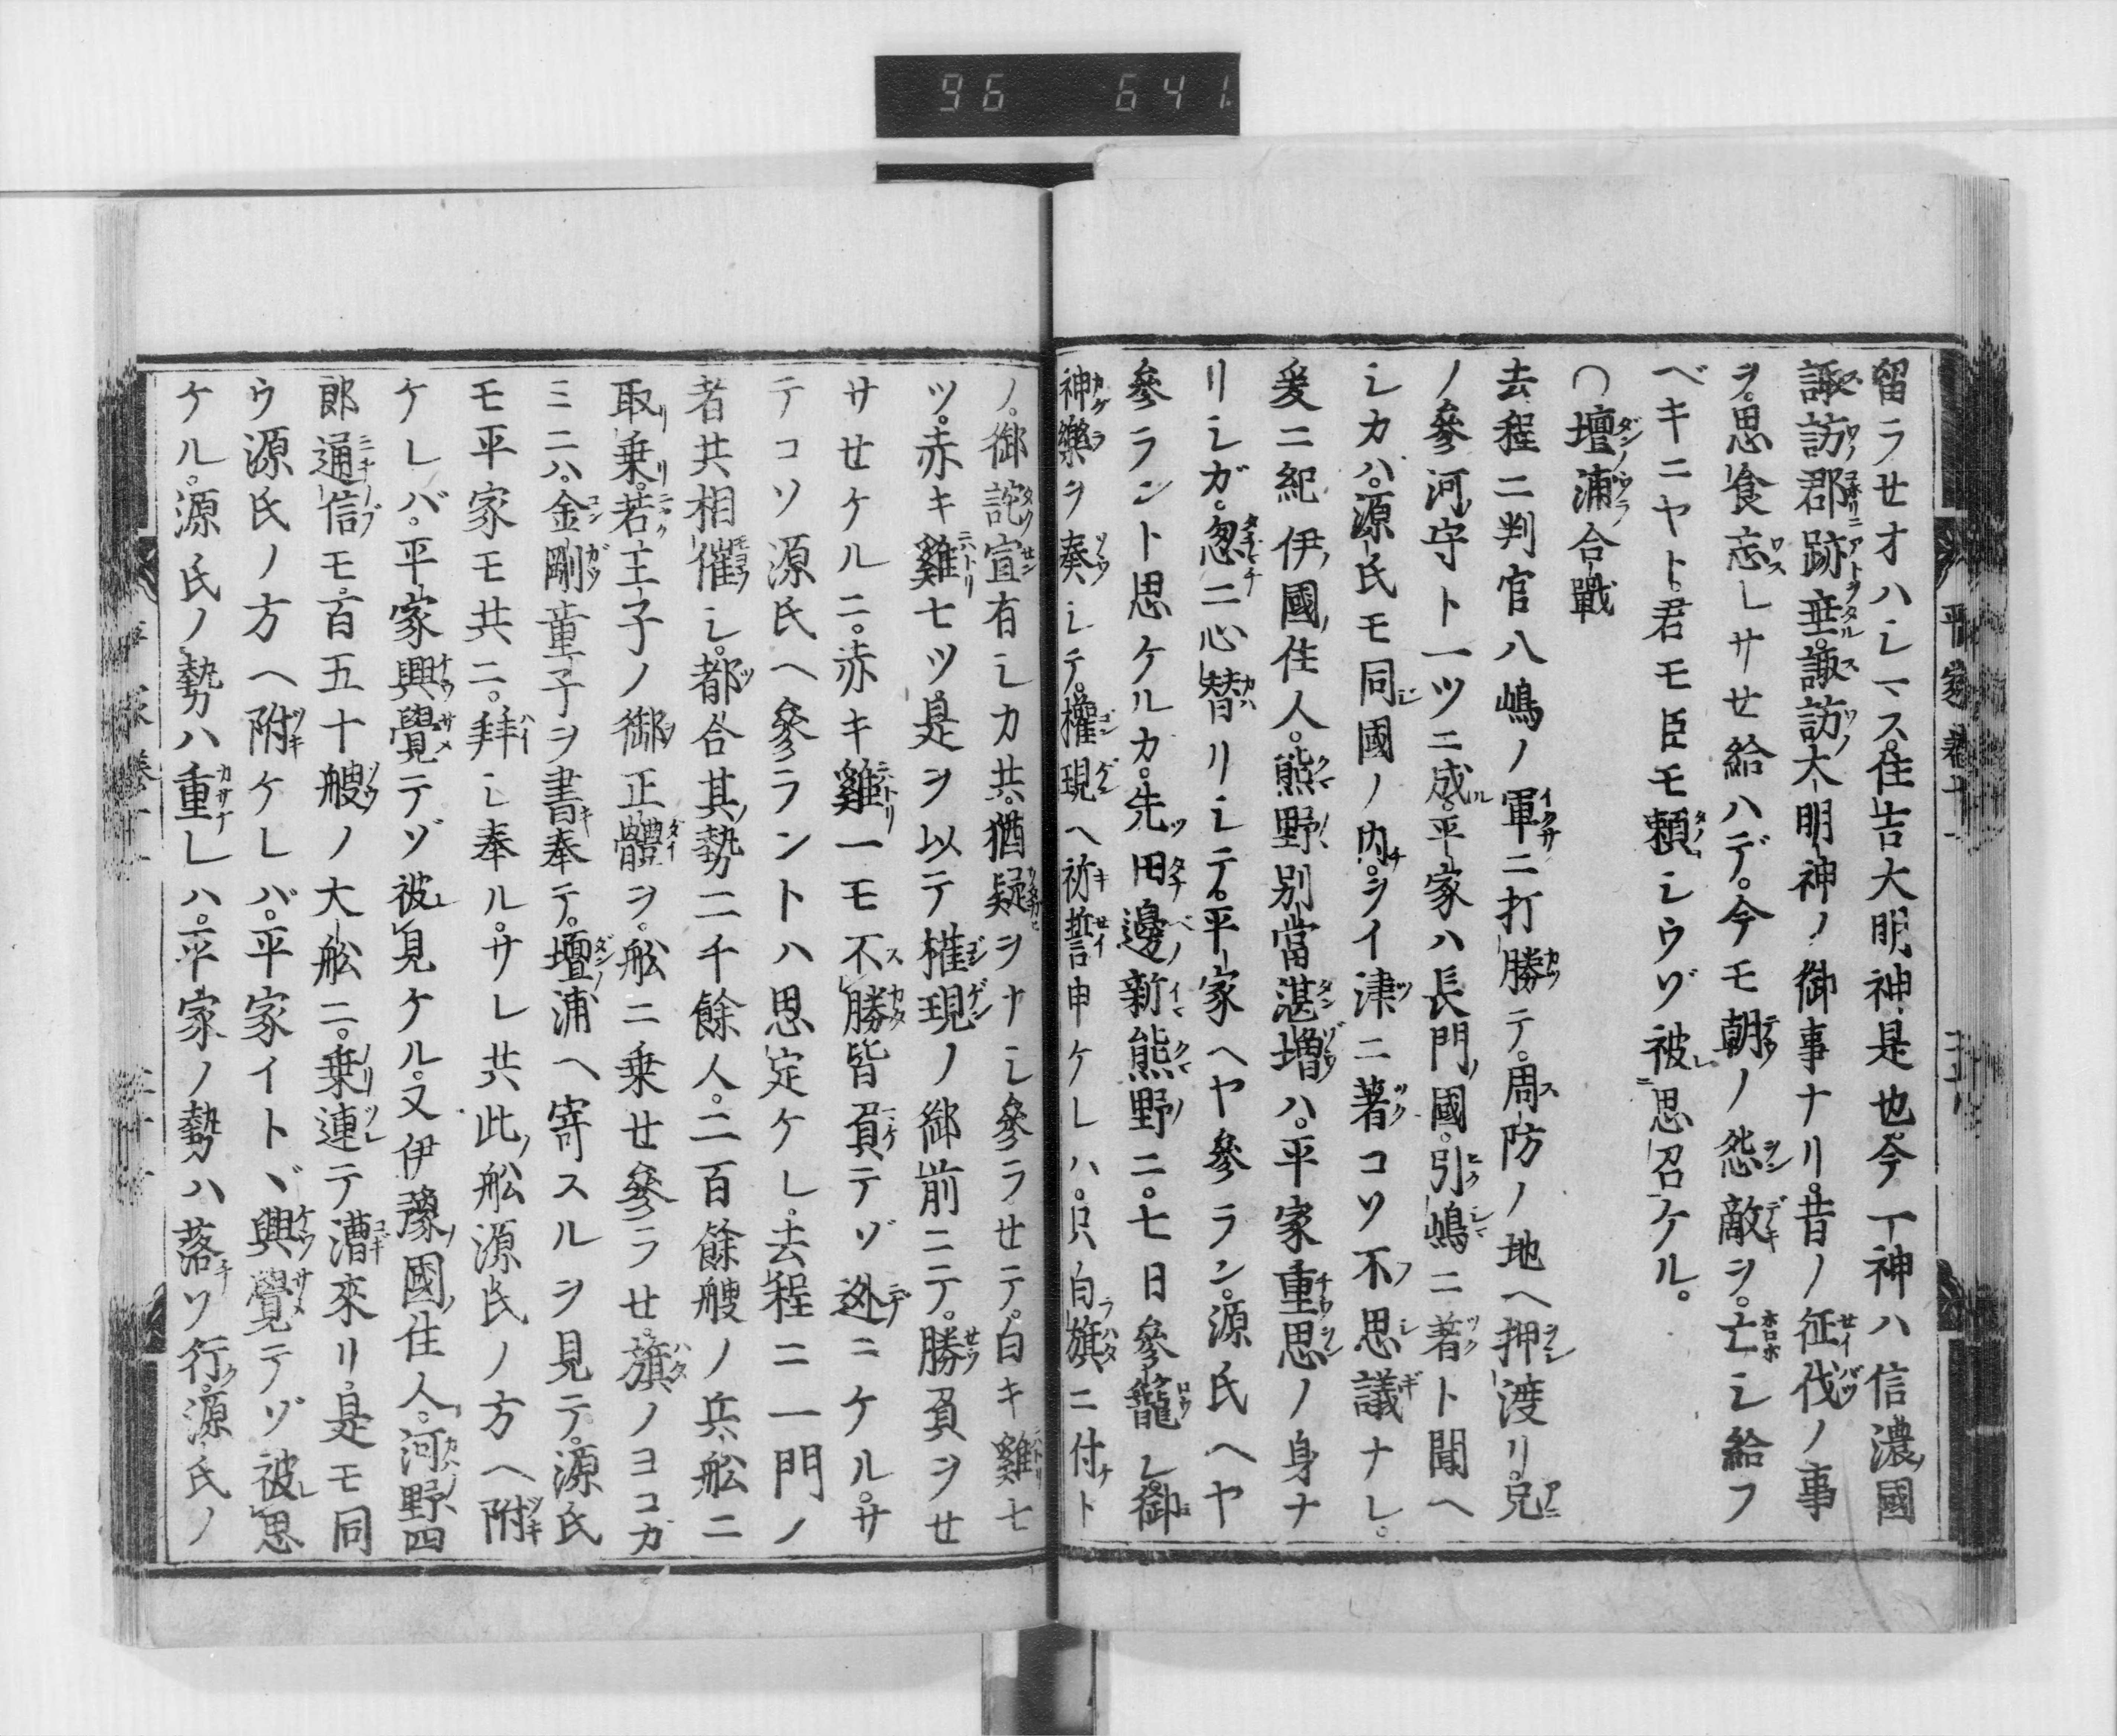 96 641
留ラせオハしマス。住吉大明神是也。今一神ハ信濃國
諏訪郡跡垂。諏訪大明神ノ御事ナリ。昔ノ征伐ノ事
ヲ。思食忘レサせ給ハデ。今モ朝ノ怨敵ヲ。亡し給フ
ベキニヤト。君モ臣モ頼しウゾ被思召ケル。
壇浦合戰
去程ニ判官八嶋ノ軍ニ打勝テ。周防ノ地ヘ押渡リ。兄
ノ參河守ト一ツニ成。平家ハ長門國。引嶋ニ著ト聞ヘ
しカハ。源氏モ同國ノ内。ヲイ津ニ著コソ不思議ナレ。
爰ニ紀伊國住人。熊野別當湛増ハ。平家重恩ノ身ナ
リしガ。忽ニ心替リしテ。平家ヘヤ參ラン。源氏ヘヤ
參ラント思ケルカ。先田邊新熊野ニ。七日參籠し。御
神樂ヲ奏しテ。權現ヘ祈誓申ケレハ。只白旗ニ付ト
ノ。御詫宣有しカ共。猶疑ヲナし參ラせテ。白キ雞七
ツ。赤キ雞七ツ。是ヲ以テ權現ノ御前ニテ。勝負ヲせ
サせケルニ。赤キ雞一モ不勝皆負テゾ迯ニケル。サ
テコソ源氏ヘ參ラントハ思定ケレ。去程ニ一門ノ
者共相催し。都合其勢二千餘人。二百餘艘ノ兵舩ニ
取乗。若王子ノ御正體ヲ。舩ニ乗せ參ラせ。旗ノヨコガ
ミニハ。金剛童子ヲ書奉テ。壇浦ヘ寄スルヲ見テ。源氏
モ平家モ共ニ。拜し奉ル。サレ共此舩源氏ノ方ヘ附
ケレバ。平家興覺テゾ被見ケル。又伊豫國住人。河野四
郎通信モ。百五十艘ノ大舩ニ。乗連テ漕來リ。是モ同
ウ源氏ノ方ヘ附ケレバ。平家イトヾ興覺テゾ被思
ケル。源氏ノ勢ハ重レハ。平家ノ勢ハ落ソ行。源氏ノ